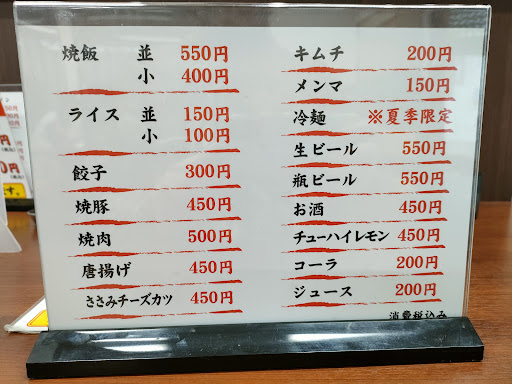 焼飯 並 550円
小 400円
ライス 並 150円
小 100円
餃子 300円
焼豚 450円
焼肉 500円
唐揚げ 450円
ささみチーズカツ 450円
キムチ 200円
メンマ 150円
冷麺 ※夏季限定
生ビール 550円
瓶ビール 550円
お酒 450円
チューハイレモン 450円
コーラ 200円
ジュース 200円
消費税込み